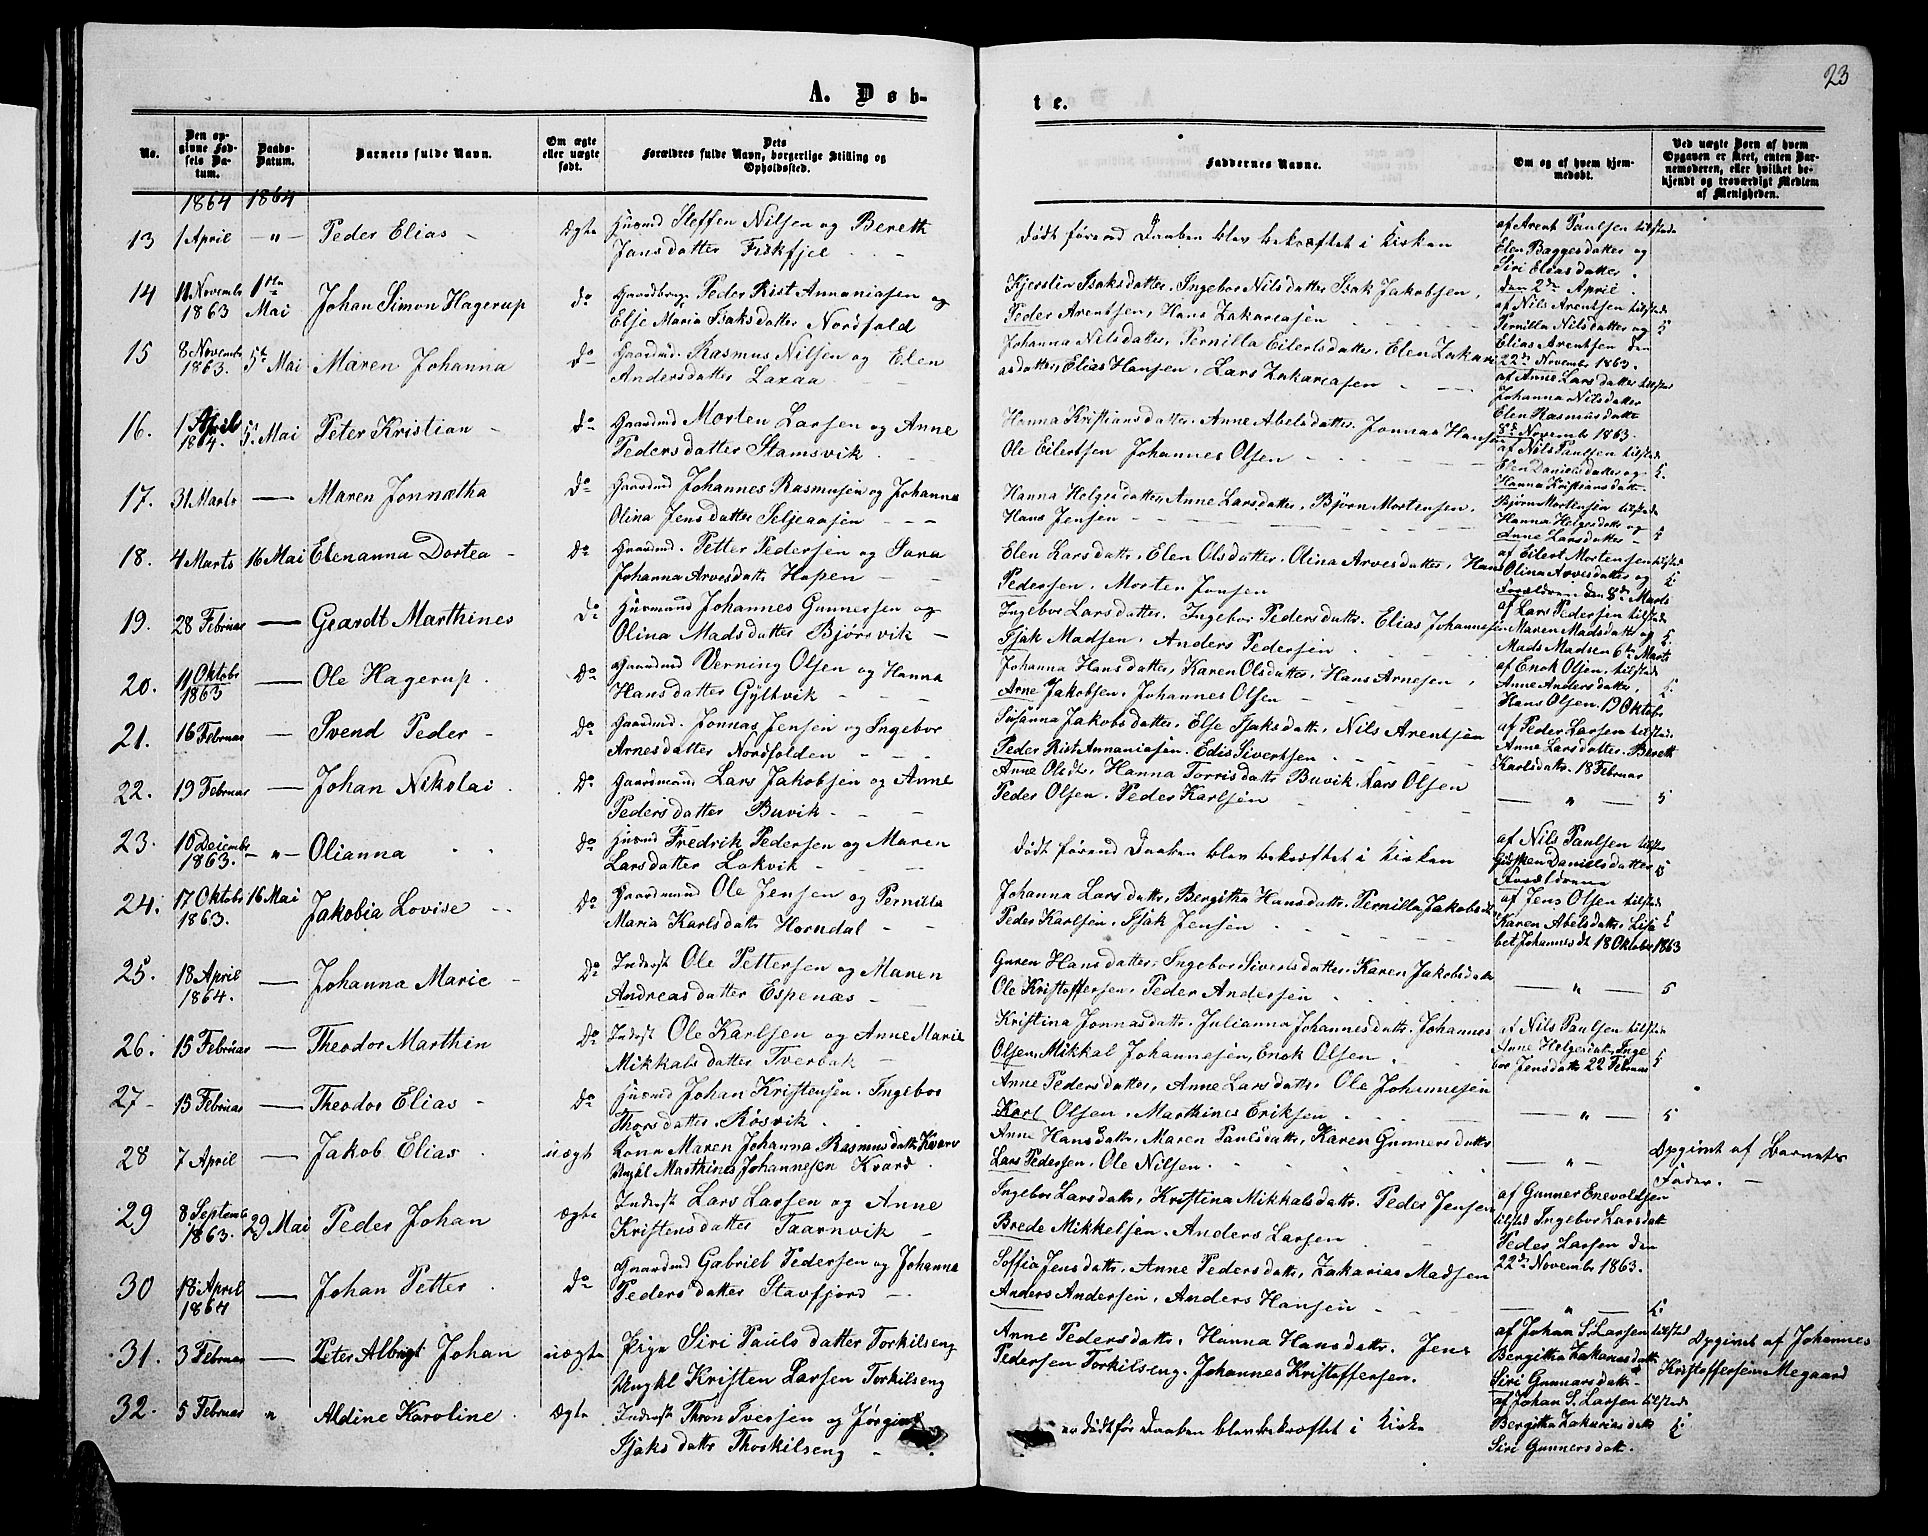 23
A. Døb-
te.
No.
Den opgivne Fødsels Datum.
Daabs-Datum.
Barnets fulde Navn.
Om ægte eller uægte født.
Dets Forældres fulde Navn, borgerlige Stilling og Opholdssted.
Faddernes Navne.
Om og af hvem hjemmedøbt.
Ved uægte Børn af hvem Opgaven er skeet, enten Barnemoderen, eller hvilket bekjendt og troværdigt Medlem af Menigheden.
1864 1864
13 1 April —"— Peder Elias - Ægte Husmd Steffen Nilsen og Bereth
Jansdatter Fiskfjel - -
Dødt førend Daaben blev bekræftet i Kirken
af Arent Paulsen tilstede
Elen Baggesdatter og
Siri Eliasdatter
den 2den April
14 11 Novembr 1863 1ste Mai Johan Simon Hagerup do Gaardbruger Peder Rist Annaniasen og
Else Maria Isaksdatter Nordfold
Kjerstin Isaksdatter, Ingebor Nilsdatter Isak Jakobsen,
Peder Arentsen, Hans Zakariasen
af Nils Arentsen tilstede
Pernilla Nilsdatter og
Elias Arentsen den
22de Novembr 1863.
15 8 Novembr 1863. 5te Mai Maren Johanna do Gaardmd. Rasmus Nilsen og Elen
Andersdatter Laxaa
Johanna Nilsdatter, Pernilla Eilertsdatter, Elen Zakari
asdatter, Elias Hansen, Lars Zakariasen
af Anne Larsdatter tilstede
Johanna Nilsdatter
Elen Rasmusdatter
8de Novembr 1863.
16. 1 April 1864. 5. Mai Peter Kristian - do Gaardmd Morten Larsen og Anne
Pedersdatter Stamsvik
Hanna Kristiansdatter, Anne Abelsdatter, Jonnas Hansen
Ole Eilertsen Johannes Olsen
af Nils Paulsen tilstede
Elen Danielsdatter og
Hanna Kristiansdatt.
17. 31 Marts — Maren Jonnetha do Gaardmd Johannes Rasmusen og Johanna
Olina Jensdatter Seljeaasen
Hanna Holgersdatter, Anne Larsdatter, Bjørn Mortensen,
Hans Jensen
Bjørn Mortensen tilstede
Hanna Holgersdatter og
Anne Larsdatter
18. 4 Marts 16 Mai Elenanna Dortea - do Gaardmd. Petter Pedersen og Sara
Johanna Arvesdatt. Hopen
Elen Larsdatter, Elen Olsdatter, Olina Arvesdatter, Hans
Pedersen, Morten Jonsen
af Eilert Mortensen tilstede
Olina Arvesdatter og
Forældrene den 8de Marts
19. 28 Februar — Geardt Marthines do Husmand Johannes Gunnersen og
Olina Madsdatter Bjørsvik
Ingebor Larsdatter, Ingebor Pedersdatt. Elias Johannesen
Isak Madsen, Anders Pedersen
af Lars Pedersen tilstede
Maren Madsdatt. og
Mads Madsen 6te Marts
20. 11 Oktobr 1863 — Ole Hagerup do Gaardmd Verning Olsen og Hanna
Hansdatter Gyltvik
Johanna Hansdatter, Karen Olsdatter, Hans Arnesen,
Arne Jakobsen, Johannes Olsen
af Enok Olsen, tilstede
Anne Andersdatter,
Hans Olsen. 19 Oktobr
21. 16 Februar — Svend Peder - do Gaardmd. Jonnas Jensen og Ingebor
Arnesdatter Nordfolden
Susanna Jakobsdatter, Else Isaksdatt, Nils Arentsen
Peder Rist Annaniasen, Edis Sivertsen
af Peder Larsen tilstede
Anne Larsdatter, Bereth
Karlsdatt. 18 Februar
22. 19 Februar — Johan Nikolai . do Gaardmand Lars Jakobsen og Anne
Pedersdatter Buvik
Anne Olsdt, Hanna Torrisdatt. Buvik, Lars Olsen
Peder Olsen, Peder Karlsen
—"— 5
23. 10 Decembr 1863. —"— Olianna do Husmd Fredrik Pedersen og Maren
Larsdatter Lakvik
Dødt førend Daaben blev bekræftet i Kirken
af Nils Paulsen tilstede
Danielsdatter
Forældrene
24. 17 Oktobr 1863. 16 Mai Jakobia Lovise do Gaardmand Ole Jensen og Pernilla
Maria Karlsdatt. Horndal
Johanna Larsdatt., Bergitha Hansdatt., Pernilla Jakobsdt
Peder Karlsen, Isak Jensen
af Jens Olsen tilstede
Karen Abelsdatt., Lisa
bet Johannesdt 18 Oktober 1863
25. 18 April 1864. — Johanna Marie - do Inderst Ole Pettersen og Maren
Andreasdatter Espenæs
Guren Hansdatter, Ingebor Sivertsdatter, Karen Jakobsdatt
Ole Kristoffersen, Peder Andersen
—"— 5
26. 15 Februar — Theodor Marthin do Inderst Ole Karlsen og Anne Marie
Mikkalsdatter Tverbak
Kristina Jonnasdatt., Julianna Johannesdatt., Johannes
Olsen, Mikkal Johannesen, Enok Olsen
af Nils Paulsen tilstede
Anne Holgersdatt., Inge
bor Jensdatt. 22 Februar
27 - 15 Februar — Theodor Elias - do Husmd Johan Kristensen. Ingebor
Thorsdatter Røsvik
Anne Pedersdatter, Anne Larsdatt. Ole Johannesen
Karl Olsen, Marthines Eriksen
—"— 5
28 7 April — Jakob Elias . uægt Kone Maren Johanna Rasmusdatt. Kvarv
Ungkl Marthines Johannesen Kvarv
Anne Hansdatt., Maren Paulsdatt., Karen Gunnersdatter
Lars Pedersen, Ole Nilsen
—"—
Opgivet af Barnets
Fader.
29 8 Septembr 1863. 29 Mai Peder Johan ægte Inderst Lars Larsen og Anne
Kristensdatter Taarnvik
Ingebor Larsdatt., Kristina Mikkalsdatt. Peder Jensen
Brede Mikkelsen, Anders Larsen
af Gunner Enevoldsen
tilsted Ingebor Larsdatt
Peder Larsen den
22de Novembr 1863.
30 18 April 1864 — Johan Petter . do Gaardmd Gabriel Pedersen og Johanna
Pedersdatter Stavfjord
Soffia Jensdatt., Anne Pedersdatt., Zakarias Madsen
Anders Andersen, Anders Hansen
—"—
31. 3 Februar — Peter Albregt Johan uægte Pige Siri Paulsdatter Torkilseng
Ungkl Kristen Larsen Torkilseng
Anne Pedersdatt., Hanna Hansdatt. Jens
Pedersen Torkilseng, Johannes Kristoffersen.
af Johan S. Larsen tilsted
Bergitha Zakariasdatt
Siri Gunnarsdatt.
Opgivet af Johannes
Kristoffersen Megaard
32. 5 Februar " Aldine Karoline . Ægte Inderst Thron Iversen og Jørgine
Isaksdatt. Thorkilseng
dødt før Daaben blev bekræftet i Kirke
af Johan S. Larsen tilstede
Bergitha Zakariasdatt
Siri Gunnersdatt.